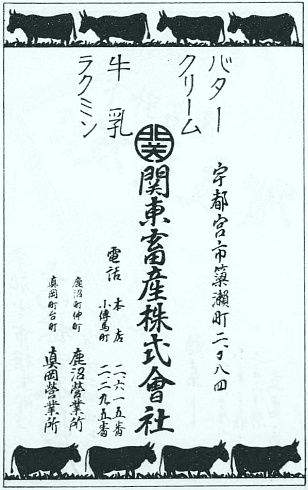 バター
クリーム
牛乳
ラクミン
宇都宮市簗瀬町二、〇八四
関東畜産株式會社
電話 本店 二、六一五番
小傳馬町 二二九五番
鹿沼町仲町 鹿沼營業所
真岡町台町 真岡營業所